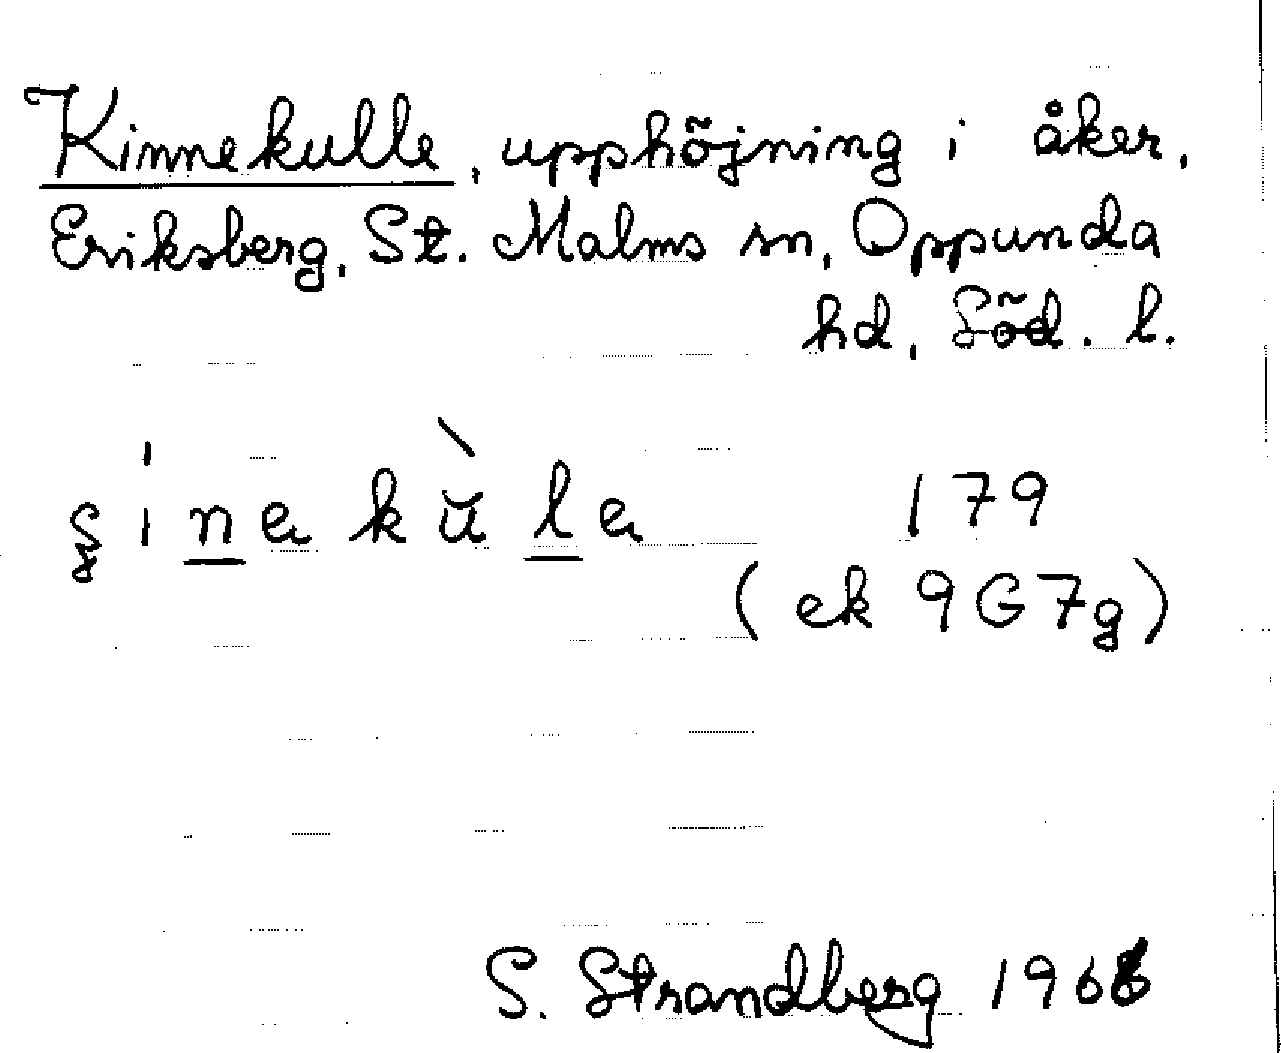 Kinnekulle, upphöjning i åker,
Eriksberg, St. Malms sn, Oppunda
hd, Söd. l.
179
(ek 9G7g)
S. Strandberg 1966